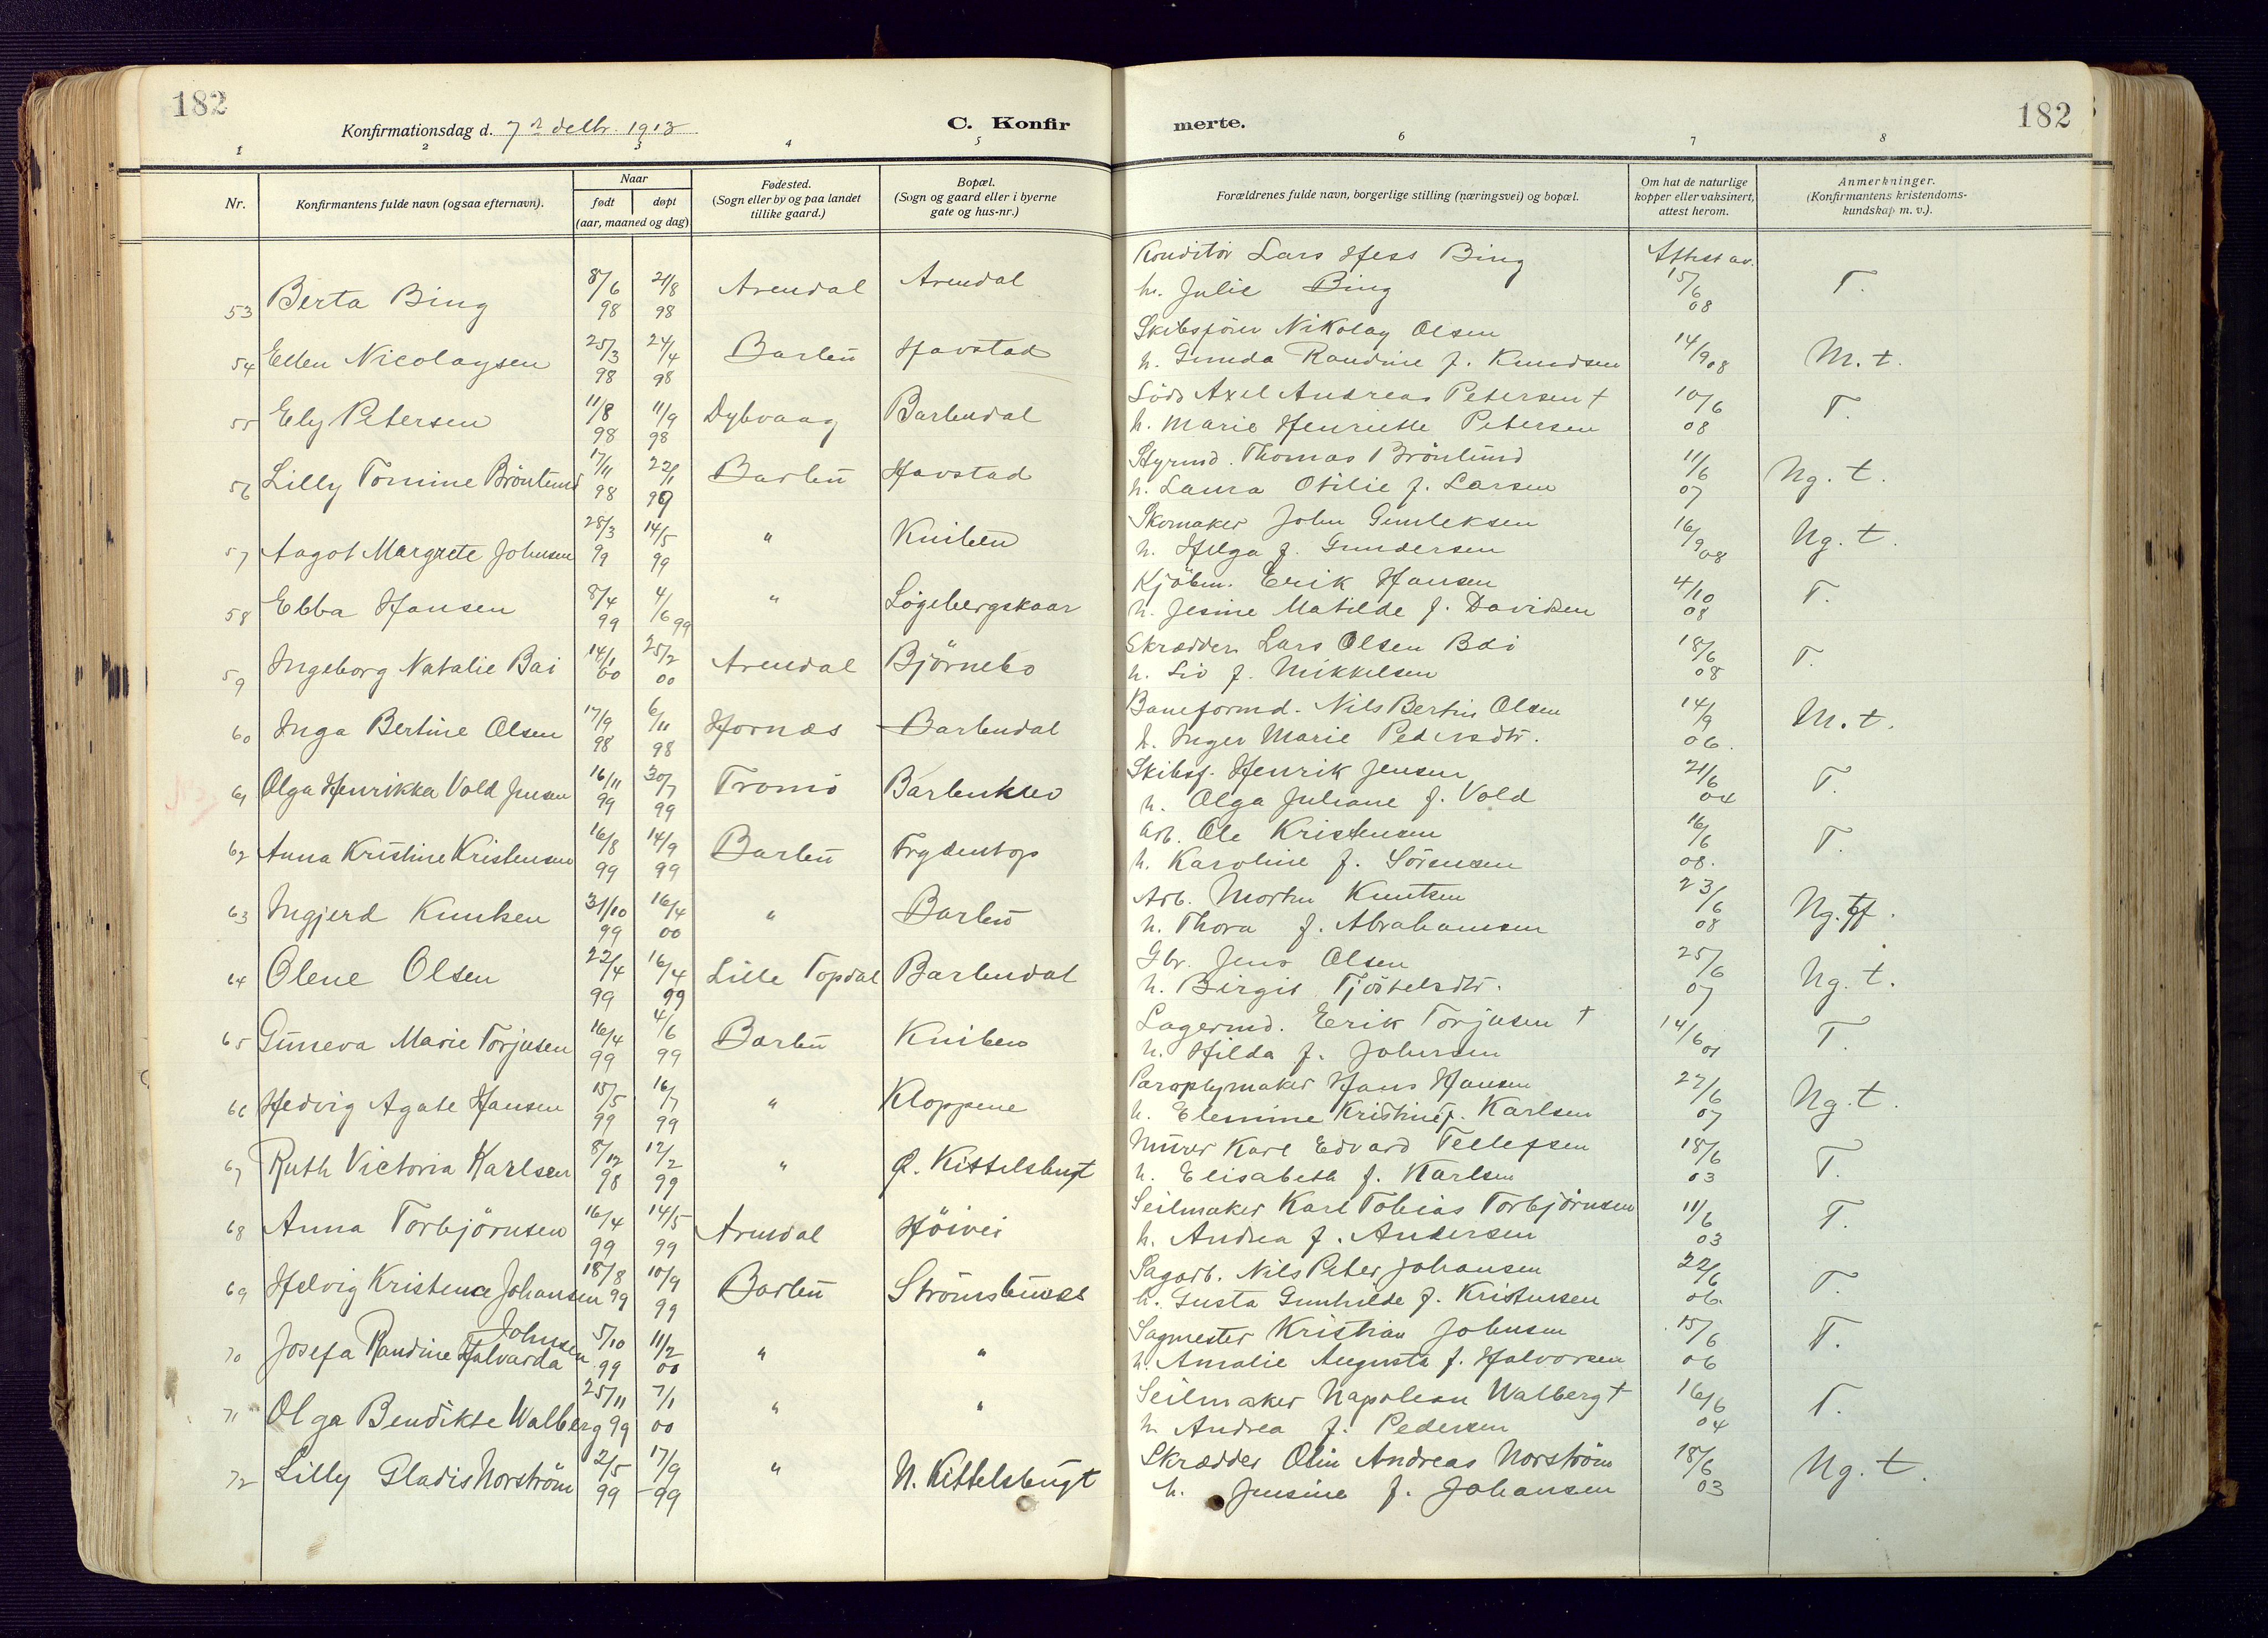 182
Konfirmationsdag d. 7de dcbr. 1913
C. Konfir
merte.
182
1 2 3 4 5 6 7 8
Nr.
Konfirmantens fulde navn (ogsaa efternavn).
Naar
født døpt
(aar, maaned og dag)
Fødested.
(Sogn eller by og paa landet
tillike gaard.)
Bopæl.
(Sogn og gaard eller i byerne
gate og hus-nr.)
Forældrenes fulde navn, borgerlige stilling (næringsvei) og bopæl.
Om hat de naturlige
kopper eller vaksinert,
attest herom.
Anmerkninger.
(Konfirmantens kristendoms-
kundskap m. v.).
53 Berta Bing 8/6 98 21/8 98 Arendal Arendal
Konditor Lars Hess Bing
h. Julie Bing
Attest av. 15/6 08 T.
54 Ellen Nicolaysen 25/3 98 24/4 98 Barbu Havstad
Skibsfører Nikolay Olsen
h. Gunda Randine f. Knudsen
14/9 08 M. t.
55 Ely Petersen 11/8 98 11/9 98 Dybvaag Barbudal
Axel Andreas Petersen †
h. Marie Henriette Petersen
10/6 08 T.
56 Lilly Tomine Brönlund 17/11 98 22/1 99 Barbu Havstad
Styrmd. Thomas Brönlund
h. Laura Otilie f. Larsen
11/6 07 Ng. t.
57 Aagot Margrete Johnsen 28/3 99 14/5 99 " Kniben
Skomaker John Gunleksen
h. Helga f. Gundersen
16/9 08 Ng. t.
58 Ebba Hansen 8/4 99 4/6 99 " Løgebergskaar
Kjöbm. Erik Hansen
h. Jesine Matilde f. Davidsen
4/10 08 T.
59 Ingeborg Natalie Bai 14/1 00 25/2 00 Arendal Björnebo
Skrædder Lars Olsen Bai
h. Liv f. Mikkelsen
18/6 08 T.
60 Inga Bertine Olsen 17/9 98 6/11 98 Hornæs Barbudal
Baneformd. Nils Bertin Olsen
h. Inger Marie Pedersdtr.
14/9 06. M. t.
61 Olga Henrikka Vold Jensen 16/11 99 30/7 99 Tromö
Skibsf. Henrik Jensen
h. Olga Juliane f. Vold
21/6 04 T.
62 Anna Kristine Kristensen 16/8 99 14/9 99 Barbu Frydentop
Arb. Ole Kristensen
h. Karoline f. Sörensen
16/6 08. T.
63 Ingjerd Knutsen 31/10 99 16/4 00 " Barbu
Arb. Morten Knutsen
h. Thora f. Abrahamsen
23/6 08 Ng.
64 Olene Olsen 22/4 99 16/4 99 Lille Topdal Barbudal
Gbr. Jens Olsen
h. Birgit Tjöstelsdtr.
25/6 07 Ng. t.
65 Guneva Marie Torjusen 16/4 99 4/6 99 Barbu Kniben
Lagermd. Erik Torjusen †
h. Hilda f. Johnsen
14/6 01 T.
66 Hedvig Agate Hansen 15/5 99 16/7 99 " Kloppene
Paraplymaker Hans Hansen
h. Elemine Kristine f. Karlsen
27/6 07 Ng. t.
67 Ruth Victoria Karlsen 8/12 98 12/2 99 " Ø. Kittelsbugt
Murer Karl Edvard Tellefsen
h. Elisabeth f. Karlsen
18/6 03 T.
68 Anna Torbjörnsen 16/4 99 14/5 99 Arendal Höivei
Seilmaker Karl Tobias Torbjörnsen
h. Andrea f. Andersen
11/6 03 T.
69 Helvig Kristence Johansen 18/8 99 10/9 99 Barbu Strömsbunes
Sagarb. Nils Peter Johansen
h. Gusta Gunhilde f. Kristensen
22/6 06. T.
70 Josefa Randine Halvarda Johnsen 5/10 99 11/2 00 " "
Sagmester Kristian Johnsen
h. Amalie Augusta f. Halvorsen
15/6 06 T.
71 Olga Bendikte Walberg 25/11 99 7/1 00 " "
Seilmaker Napoleon Walberg †
h. Andrea f. Pedersen
16/6 04 T.
72 Lilly Gladis Norström 2/5 99 17/9 99 " N. Kittelsbugt
Skrædder Olin Andreas Norström
h. Jensine f. Johansen
18/6 03 Ng. t.